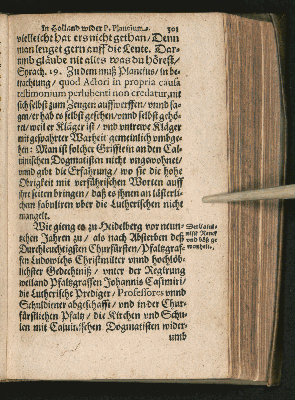 In Holland wider P. Plancium. 301
vielleicht hat ers nicht gethan / Denn
man leuget gern auff die Leute. Dar-
umb gläube nit alles was du hörest /
Sprach. 19. Zu dem muß Plancius / in be-
trachtung / quod Actori in propria causa
testimonium perhibenti non credatur, nit
sich selbst zum Zeugen auffwerffen / vnnd sa-
gen / er hab es selbst gesehen / vnnd selbst gehö-
ret / weil er Kläger ist / vnd vntrewe Kläger
mit gesparter Warheit gemeinlich vmbge-
hen: Man ist solcher Griffle in an den Cal-
vinischen Dogmatisten nicht vngewohnet /
vnnd gibt die Erfahrung / wo sie die hohe
Obrigkeit mit verführischen Worten auff
ihre seiten bringen / daß es ihnen an lästerli-
chem fabuliren vber die Lutherischen nicht
mangelt.
Wie gieng es zu Heidelberg vor neun-
zehen Jahren zu / als nach Absterben deß
Durchleuchtigsten Churfürsten / Pfaltzgraf-
fen Ludowichs Christmilter vnnd hochlöb-
lichster Gedechtniß / vnter der Regirung
weiland Pfaltzgraffen Johannis Casimiri /
die Lutherische Prediger / Professores vnnd
Schuldiener abgeschafft / vnd in der Chur-
fürstlichen Pfaltz / die Kirchen vnd Schu-
len mit Calvinischen Dogmatisten wider-
umb
Der Calvi-
nisten
vnd böse ge-
wonheit.